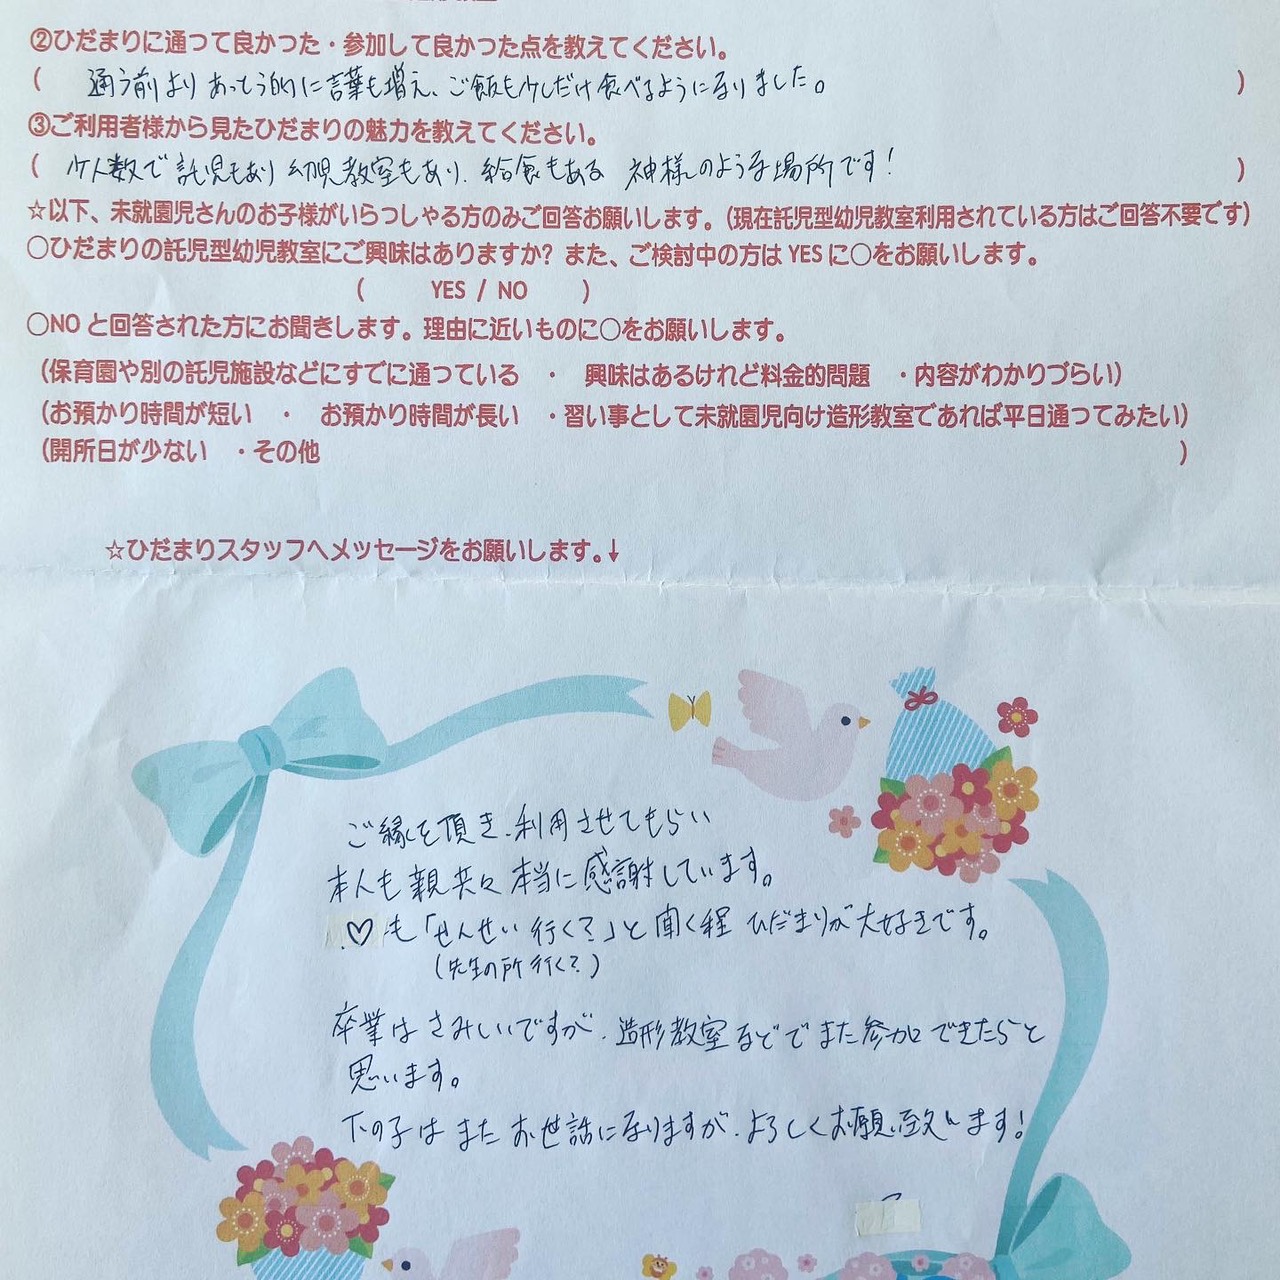 ②ひだまりに通って良かった・参加して良かった点を教えてください。
( 通う前より あっとう的に言葉も増え、ご飯も少しだけ食べるようになりました。 )
③ご利用者様から見たひだまりの魅力を教えてください。
( 少人数で 託児もあり 幼児教室もあり、給食もある 神様のような場所です! )
☆以下、未就園児さんのお子様がいらっしゃる方のみご回答お願いします。(現在託児型幼児教室利用されている方はご回答不要です)
○ひだまりの託児型幼児教室にご興味はありますか? また、ご検討中の方は YES に○をお願いします。
( YES / NO )
○NO と回答された方にお聞きします。理由に近いものに○をお願いします。
(保育園や別の託児施設などにすでに通っている ・ 興味はあるけれど料金的問題 ・内容がわかりづらい)
(お預かり時間が短い ・ お預かり時間が長い ・習い事として未就園児向け造形教室であれば平日通ってみたい)
(開所日が少ない ・その他 )
☆ひだまりスタッフへメッセージをお願いします。↓
ご縁を頂き、利用させてもらい
本人も親共々 本当に感謝しています。
♡も「せんせい 行く?」と聞く程 ひだまりが大好きです。
(先生の所 行く?)
卒業は さみしいですが、造形教室などで また参加できたらと
思います。
下の子は また お世話になりますが、よろしくお願い致します!